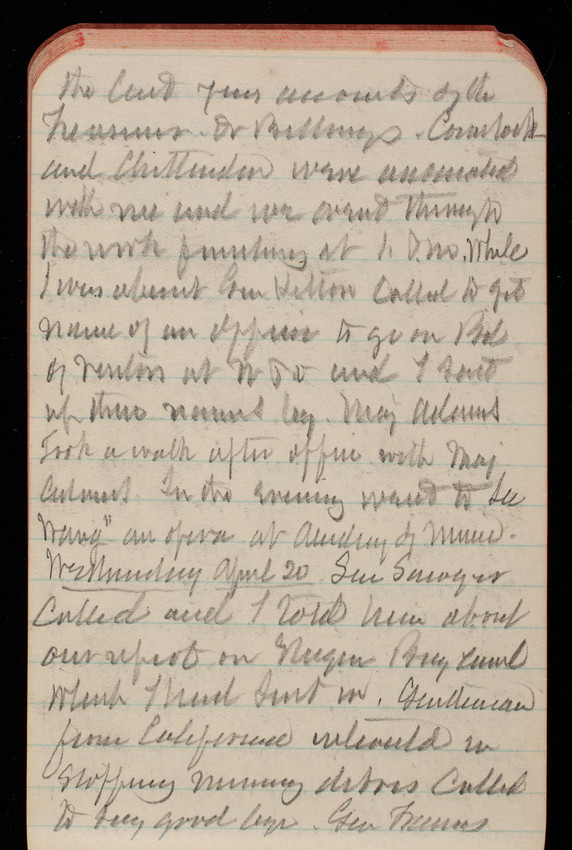 the last years accounts of the
Treasurer. Dr Billings. Comstock
and Chittenden were associated
with me and we went through
the work finishing at 1.
I was absent Gen called to get
name of an officer to go on Bd
of at and I sent
up three names by Maj Adams
Took a walk after office with Maj
Adams. In the evening went to see
Wang" an opera at Academy of Music.
Wednesday April 20 Sen Sawyer
Called and I told him about
our report on Sturgeon Bay Canal
which I had sent in. Gentleman
from California interested in
stopping mining debris called
to say good bye. Gen